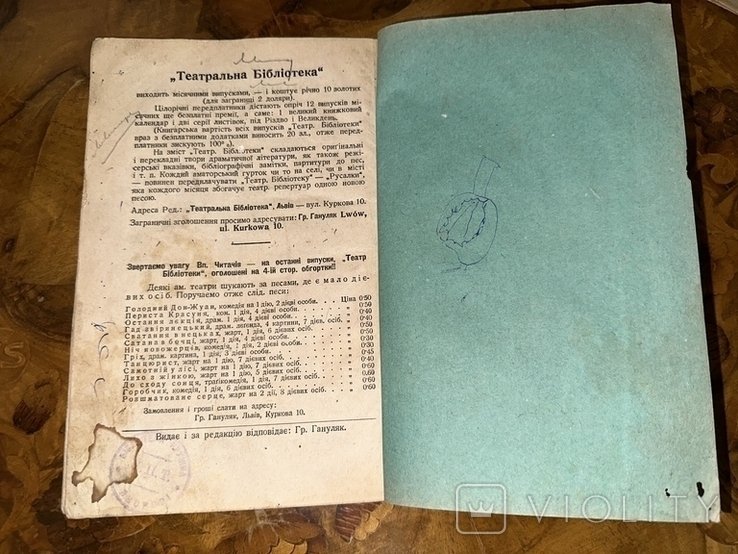 „Театральна Бібліотека"
виходить місячними випусками, — і коштує річно 10 золотих
(для загранищі 2 доляри).
Цілорічні передплатники дістають опріч 12 випусків мі-
сячних ще безплатні премії, а саме: 1 великий книжковий
календар і дві серії листівок, під Різдво і Великдень.
(Книгарська вартість всіх випусків „Театр. Бібліотеки"
враз з безплатними додатками виносить 20 зл., отже перед-
платники зискують 100%.)
На зміст „Театр. Бібл'отеки" складаються оригінальні
і перекладні твори драматичної літератури, як також режі-
серські вказівки, бібліографічні замітки, партитури до пєс,
і т. п. Кождий аматорський гурток чи то на селі, чи в місті
— повинен передплачувати „Театр. Бібліотеку" — „Русалки",
яка кождого місяця збогачує театр. репертуар одною новою
песою.
Адреса Ред.: „Театральна Бібліотека", Львів — вул. Куркова 10.
Заграничні зголошення просимо адресувати: Гр. Гануляк Lwów,
ul. Kurkowa 10.
Звертаємо увагу Вп. Читачів — на останні випуски, „Театр
Бібліотеки", оголошені на 4-ій стор. обгортки!!
Деякі ам. театри шукають за песами, де є мало діє-
вих осіб. Поручаємо отже слід. песи:
Голодний Дон-Жуан, комедія на 1 дію, 2 дієві особи. Ціна 0·50
Периста Красуня, ком. 1 дія, 4 дієві особи. „ 0·40
Остання лєкція, драм. 1 дія, 4 дієві особи. „ 0·40
Гад звірянецький, драм. лєґенда, 4 картини, 7 дієв. осіб. „
Сватання в Нецьках, жарт, 1 дія, 6 дієвих осіб.
Сатана в бочці, жарт, 1 дія, 4 дієві особи.
Ніч новожерців, комедія, 1 дія, 2 дієві особи.
Гріх, драм. картина, 1 дія, 3 дієві особи.
Танцюрист, жарт на 1 дію, 7 дієвих осіб.
Самотній у лісі, жарт на 1 дію, 7 дієвих осіб.
Лихо з жінкою, жарт на 1 дію, 5 дієвих осіб.
До сходу сонця, траґікомедія, 1 дія, 7 дієвих осіб.
Горобчик, комедія, 1 дія, 6 дієвих осіб.
Розшматоване серце, жарт на 2 дії, 8 дієвих осіб. „ 0·60
Замовлення і гроші слати на адресу:
Гр. Гануляк, Львів, Куркова 10.
Видає і за редакцію відповідає: Гр. Гануляк.
VIOLITY